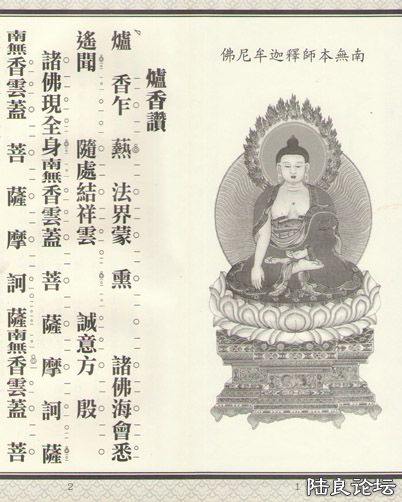 南無本師釋迦牟尼佛
1
爐香讚
爐香乍爇法界蒙熏 諸佛海會悉
遙聞 隨處結祥雲 誠意方殷
諸佛現全身南無香雲蓋菩薩摩訶薩
南無香雲蓋菩薩摩訶薩南無香雲蓋菩
2
陆良论坛